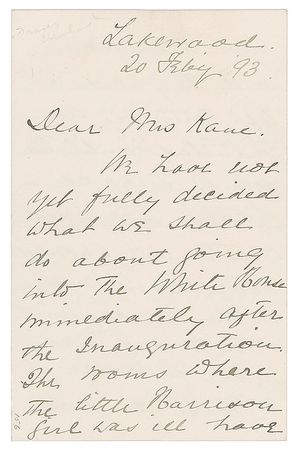 Lakewood.
20 Feby 93.
Dear Mrs Kane.
We have not
yet fully decided
what we shall
do about going
into the White House
immediately after
the Inauguration.
The rooms where
the little Harrison
girl was ill have